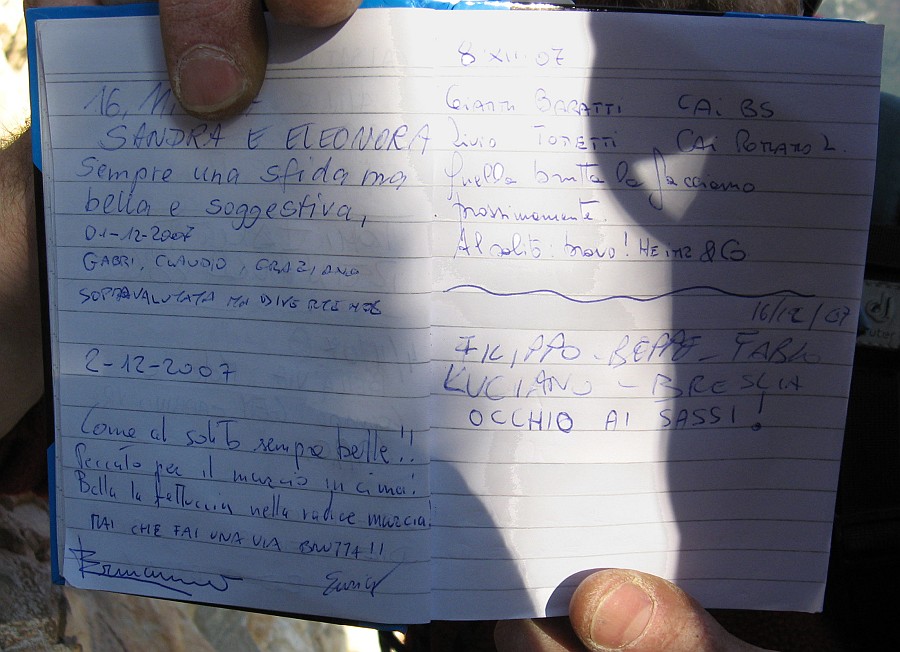 16, 11
SANDRA E ELEONORA
Sempre una sfida ma
bella e soggestiva,
01-12-2007
GABRI, CLAUDIO, GRAZIANO
SOPRAVALUTATA MA DIVERTENTE
2-12-2007
Come al solito sempre belle!!
Peccato per il marcio in cima!
Bella la fettuccia nella radice marcia!
MAI CHE FAI UNA VIA BRUTTA!!
8 XII 07
Gianni BARATTI CAi BS
Livio TOTETTI CAi
Quella brutta la facciamo
prossimamente.
Al solito: bravo! HEinz & Co
16/12/07
FILIPPO - BEPPE - FABIO
LUCIANO - BRESCIA
OCCHIO AI SASSI!